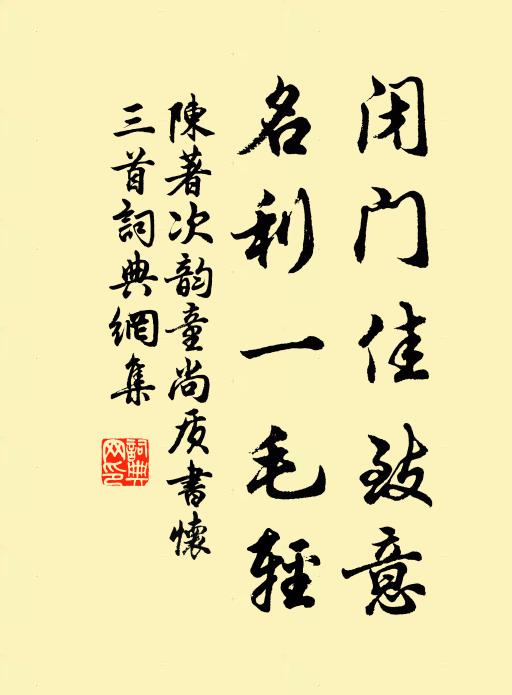 闭门佳致意
名利一毛輕
陳著次韵童尚质書懷
三首詞典網集
詞典网印